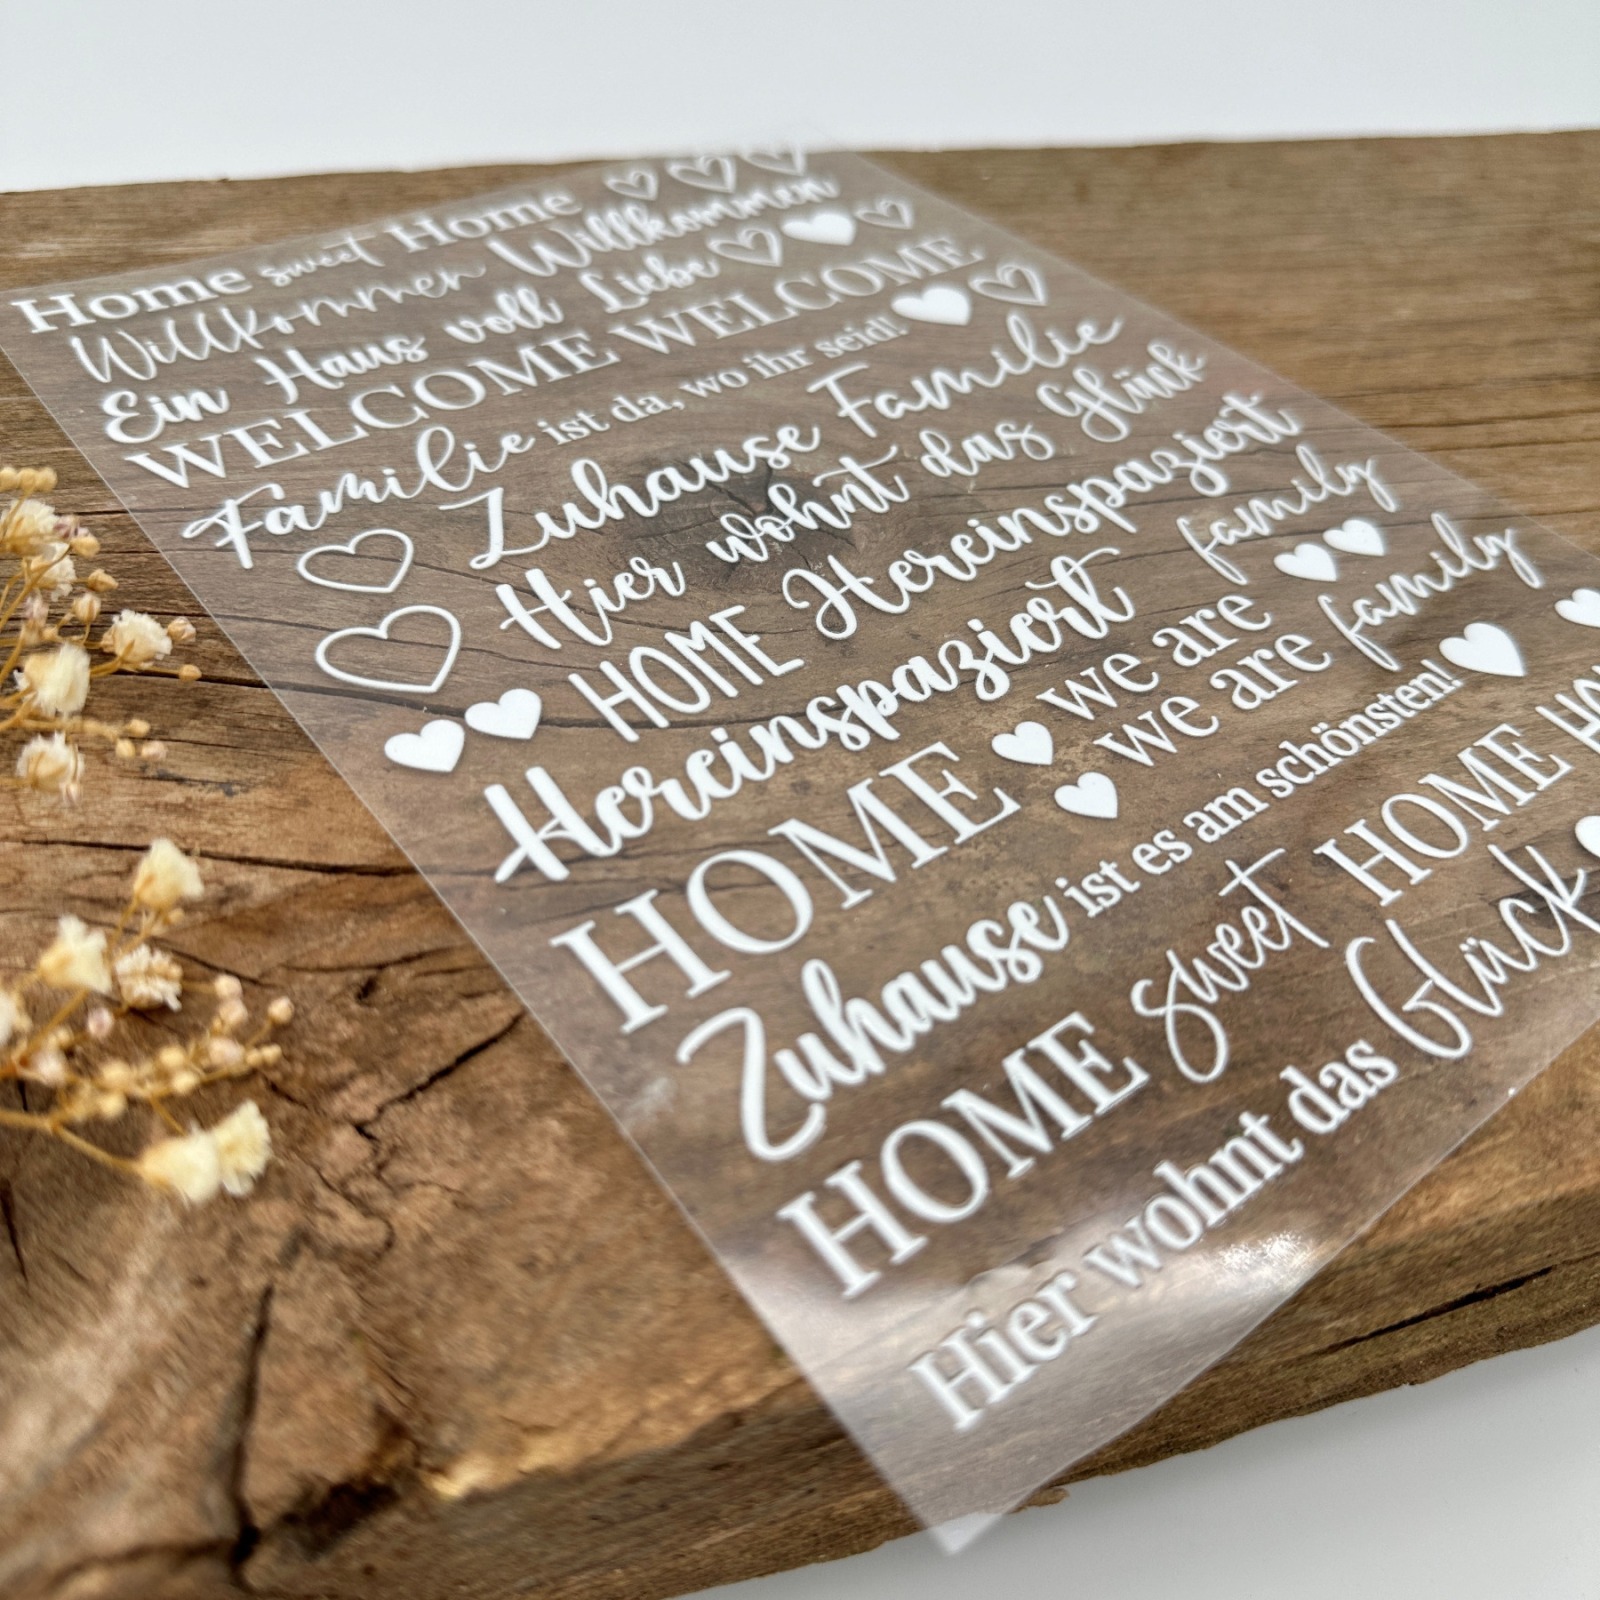 Home sweet Home
Willkommen Willkommen
Ein Haus voll Liebe
WELCOME WELCOME
Familie ist da, wo ihr seid!
Zuhause Familie
Hier wohnt das Glück
HOME Hereinspaziert
Hereinspaziert family
HOME we are
we are family
Zuhause ist es am schönsten!
HOME sweet HOME
Hier wohnt das Glück